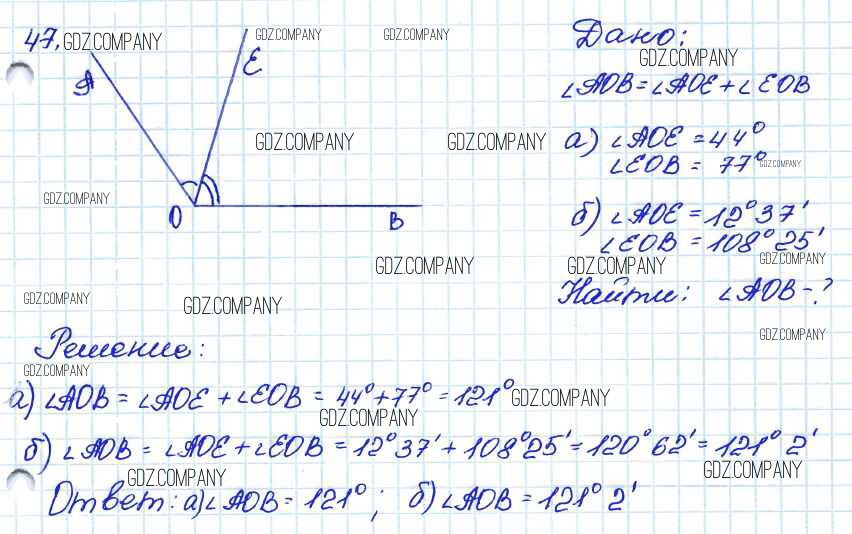 47. GDZ.COMPANY
GDZ.COMPANY
GDZ.COMPANY
Дано:
GDZ.COMPANY
A
E
∠AOB = ∠AOE + ∠EOB
GDZ.COMPANY
GDZ.COMPANY
а) ∠AOE = 44°
∠EOB = 77° GDZ.COMPANY
GDZ.COMPANY
O
B
б) ∠AOE = 12°37'
∠EOB = 108°25'
GDZ.COMPANY
GDZ.COMPANY
GDZ.COMPANY
Найти: ∠AOB - ?
GDZ.COMPANY
GDZ.COMPANY
GDZ.COMPANY
Решение:
GDZ.COMPANY
а) ∠AOB = ∠AOE + ∠EOB = 44° + 77° = 121° GDZ.COMPANY
GDZ.COMPANY
б) ∠AOB = ∠AOE + ∠EOB = 12°37' + 108°25' = 120°62' = 121°2'
GDZ.COMPANY
GDZ.COMPANY
Ответ: а) ∠AOB = 121°; б) ∠AOB = 121°2'